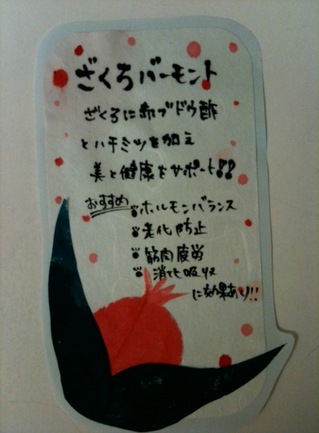 ざくろバーモント
ざくろに赤ブドウ酢
とハチミツを加え
美と健康をサポート!!
おすすめ
ホルモンバランス
老化防止
筋肉疲労
消化吸収
に効果あり!!